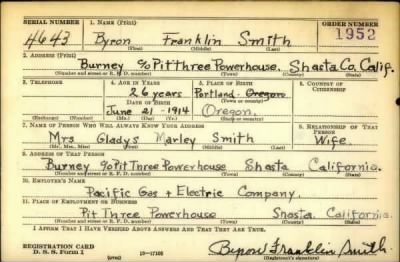 SERIAL NUMBER 1. NAME (Print) ORDER NUMBER
4643 Byron Franklin Smith 1952
(First) (Middle) (Last)
2. ADDRESS (Print)
Burney c/o Pit Three Powerhouse. Shasta Co. Calif.
(Number and street or R. F. D. number) (Town) (County) (State)
3. TELEPHONE 4. AGE IN YEARS 5. PLACE OF BIRTH 6. COUNTRY OF CITIZENSHIP
26 years Portland Oregon
DATE OF BIRTH (Town or county)
June 21 1914 Oregon.
(Exchange) (No.) (Mo.) (Day) (Yr.) (State or country)
7. NAME OF PERSON WHO WILL ALWAYS KNOW YOUR ADDRESS 8. RELATIONSHIP OF THAT PERSON
Mrs Gladys Marley Smith Wife.
(Mr., Mrs., Miss) (First) (Middle) (Last)
9. ADDRESS OF THAT PERSON
Burney c/o Pit Three Powerhouse Shasta California.
(Number and street or R. F. D. number) (Town) (County) (State)
10. EMPLOYER'S NAME
Pacific Gas + Electric Company.
11. PLACE OF EMPLOYMENT OR BUSINESS
Pit Three Powerhouse Shasta. California.
(Number and street or R. F. D. number) (Town) (County) (State)
I AFFIRM THAT I HAVE VERIFIED ABOVE ANSWERS AND THAT THEY ARE TRUE.
REGISTRATION CARD
D. S. S. Form 1 (over) Byron Franklin Smith.
(Registrant's signature)